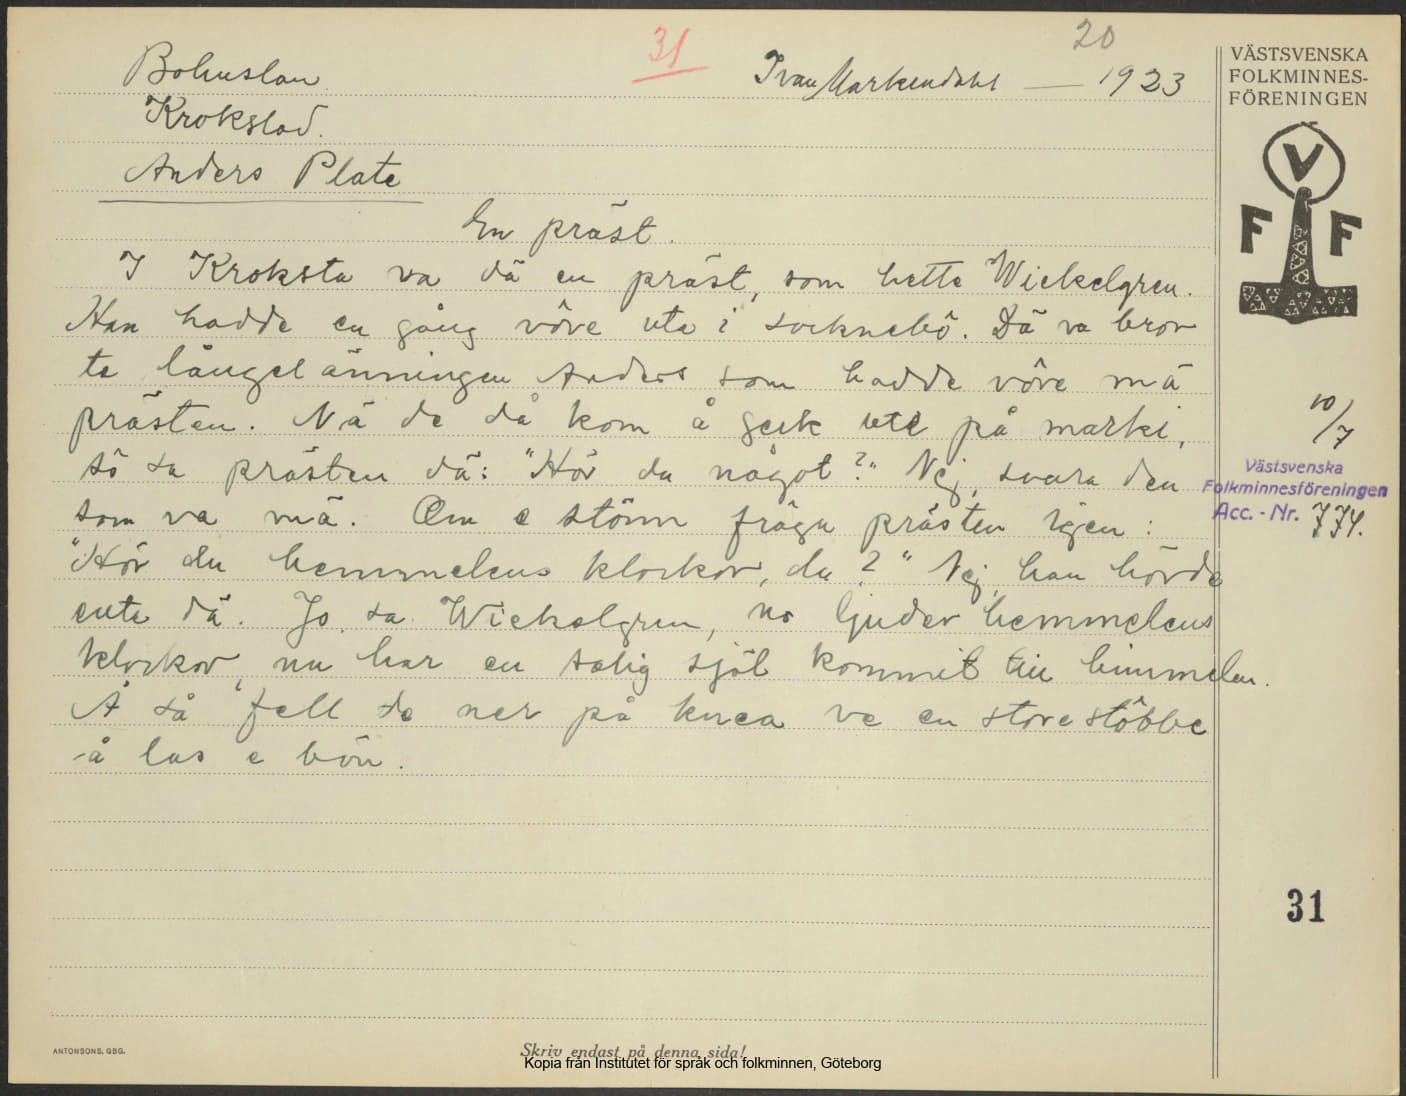 31
20
Bohuslän
Ivan Markendahl — 1923
Krokstad.
Anders Plate
En präst.
I Kroksta va dä en präst, som hette Wickelgren.
Han hadde en gång vôre ute i socknebô. Dä va bror
te långelänningen Anders som hadde vôre mä
prästen. Nä de då kom å geck ute på marki,
sô sa prästen dä: "Hör du något?" Nej, svara den
som va mä. Om e stönn fråga prästen igen:
"Hör du hemmelens klockor, du?" Nej, han hörde
ente dä. Jo, sa Wickelgren, no ljuder hemmelens
klockor, nu har en salig själ kommit till himmelen.
Å så fell de ner på knea ve en store stôbbe
å las e bön.
VÄSTSVENSKA
FOLKMINNES-
FÖRENINGEN
V
F F
10/7
Västsvenska
Folkminnesföreningen
Acc. - Nr. 774.
31
ANTONSONS, GBG.
Skriv endast på denna sida!
Kopia från Institutet för språk och folkminnen, Göteborg